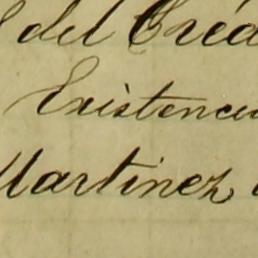 del Créd
Existencia
Martinez